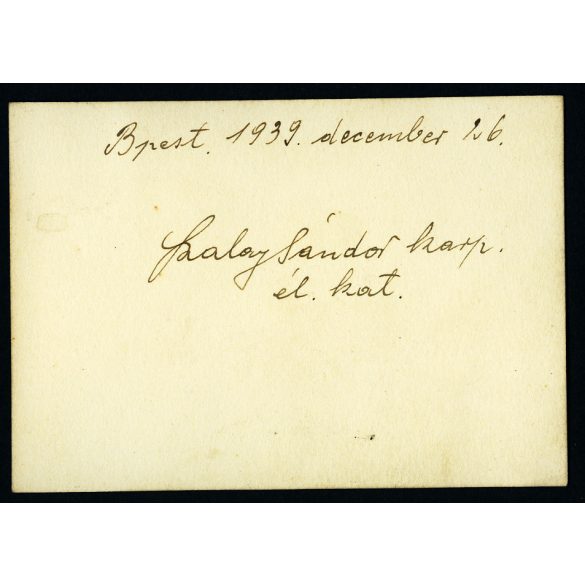 Bpest. 1939. december 26.
Szalay Sándor karp.
él. kat.